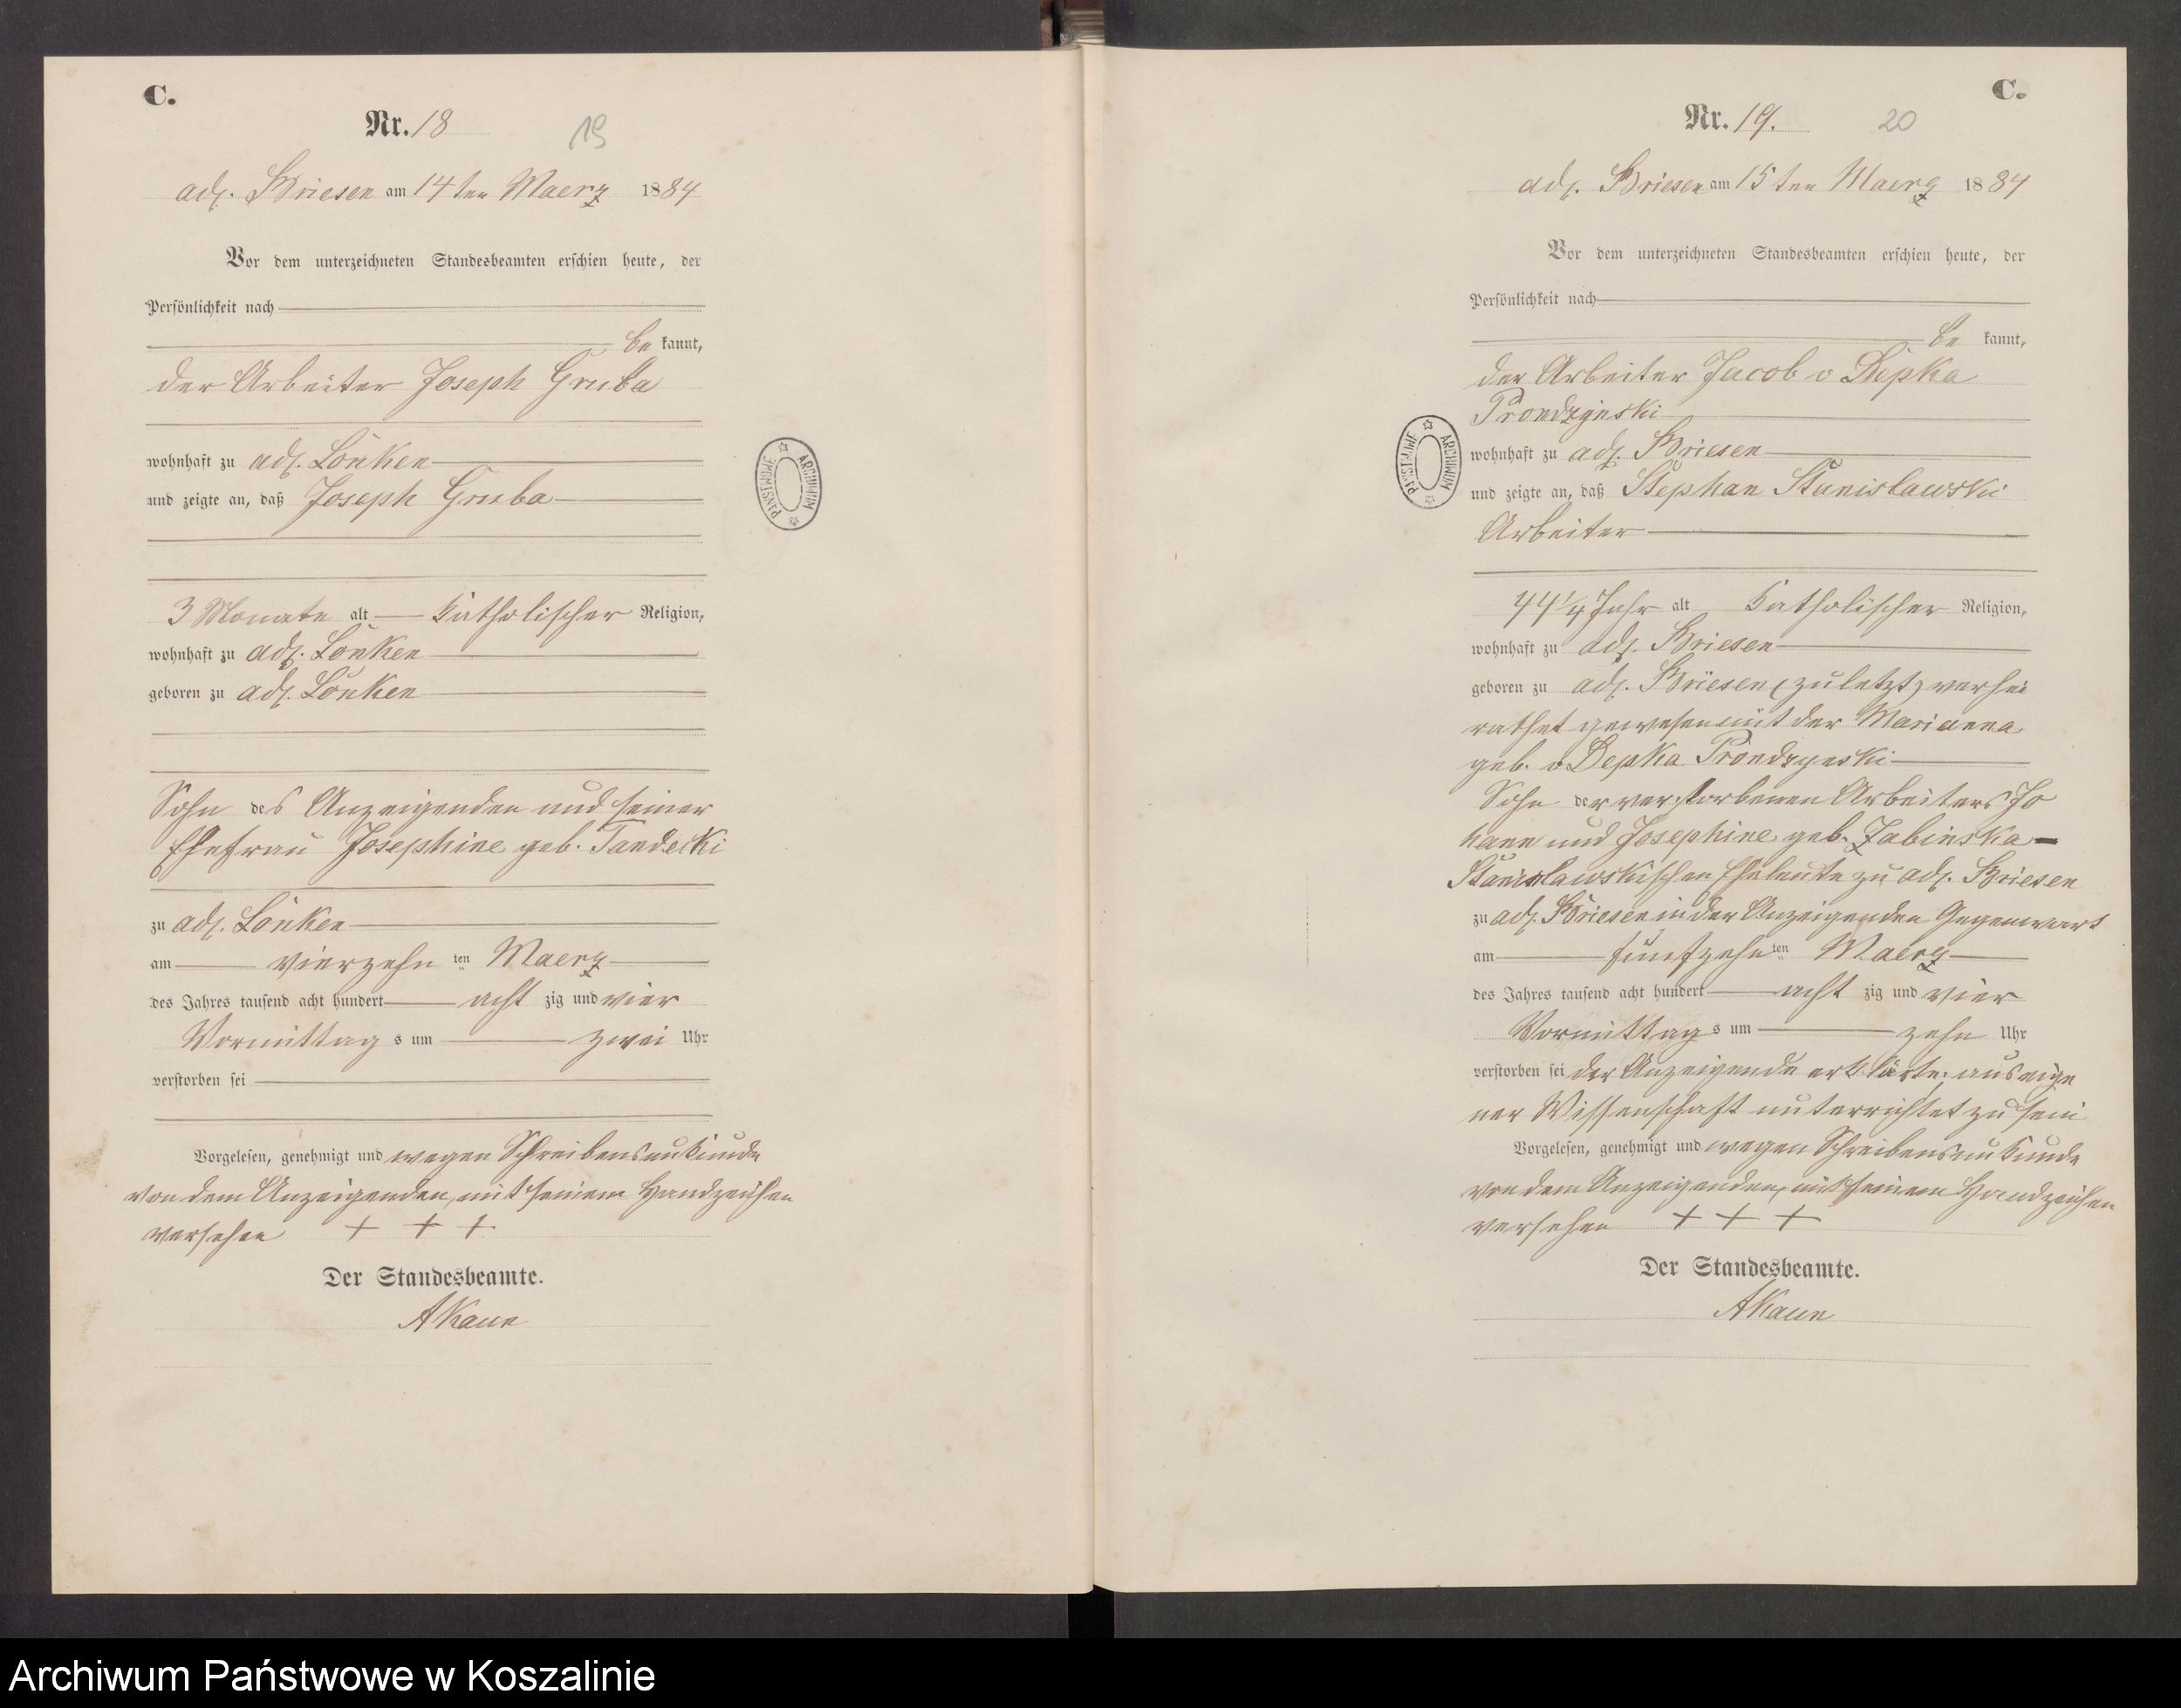 C.
Nr. 18
19
adl. Briesen am 14ten Maerz 1884
Vor dem unterzeichneten Standesbeamten erschien heute, der
Persönlichkeit nach
be kannt,
der Arbeiter Joseph Gruba
wohnhaft zu adl. Lonken
und zeigte an, daß Joseph Gruba
3 Monate alt katholischer Religion,
wohnhaft zu adl. Lonken
geboren zu adl. Lonken
Sohn des Anzeigenden und seiner
Ehefrau Josephine geb. Tandecki
zu adl. Lonken
am vierzehn ten Maerz
des Jahres tausend acht hundert acht zig und vier
Vormittag s um zwei Uhr
verstorben sei
Vorgelesen, genehmigt und wegen Schreibensunkunde
von dem Anzeigenden, mit seinem Handzeichen
versehen + + +
Der Standesbeamte.
AKaun
PAŃSTWOWE ARCHIWUM
C.
Nr. 19.
20
adl. Briesen am 15ten Maerz 1884
Vor dem unterzeichneten Standesbeamten erschien heute, der
Persönlichkeit nach
be kannt,
der Arbeiter Jacob v Depka
Prondzynski
wohnhaft zu adl. Briesen
und zeigte an, daß Stephan Stanislawski
Arbeiter
44 1/4 Jahr alt katholischer Religion,
wohnhaft zu adl. Briesen
geboren zu adl. Briesen (zuletzt) verhei
rathet gewesen mit der Marianna
geb. v Depka Prondzynski
Sohn der verstorbenen Arbeiters Jo
hann und Josephine geb. Zabinska -
Stanislawskischen Eheleute zu adl. Briesen
zu adl. Briesen in der Anzeigenden Gegenwart
am fünfzehn ten Maerz
des Jahres tausend acht hundert acht zig und vier
Vormittag s um zehn Uhr
verstorben sei der Anzeigende erklärte; aus eige
ner Wissenschaft unterrichtet zu sein
Vorgelesen, genehmigt und wegen Schreibensunkunde
von dem Anzeigenden, mit seinem Handzeichen
versehen + + +
Der Standesbeamte.
AKaun
PAŃSTWOWE ARCHIWUM
Archiwum Państwowe w Koszalinie